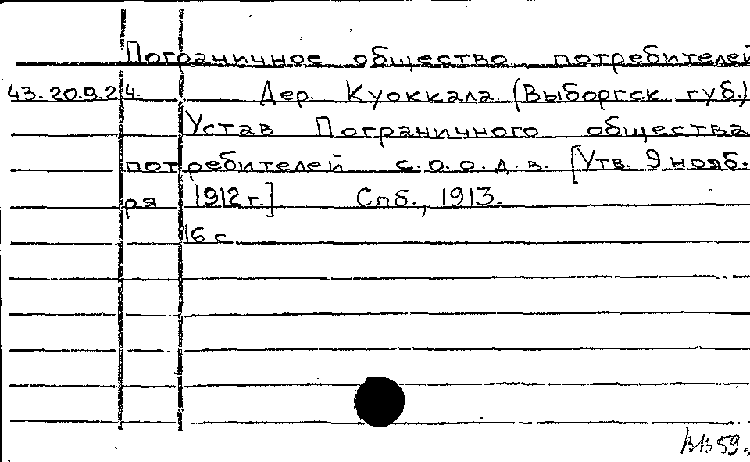 Пограничное общество потребителей
43.20.9.24. Дер Куоккала (Выборгск губ.)
Устав Пограничного общества
потребителей с.о.о.д.в. [Утв. 9 нояб-
ря 1912 г.] Спб., 1913.
16 с
59.